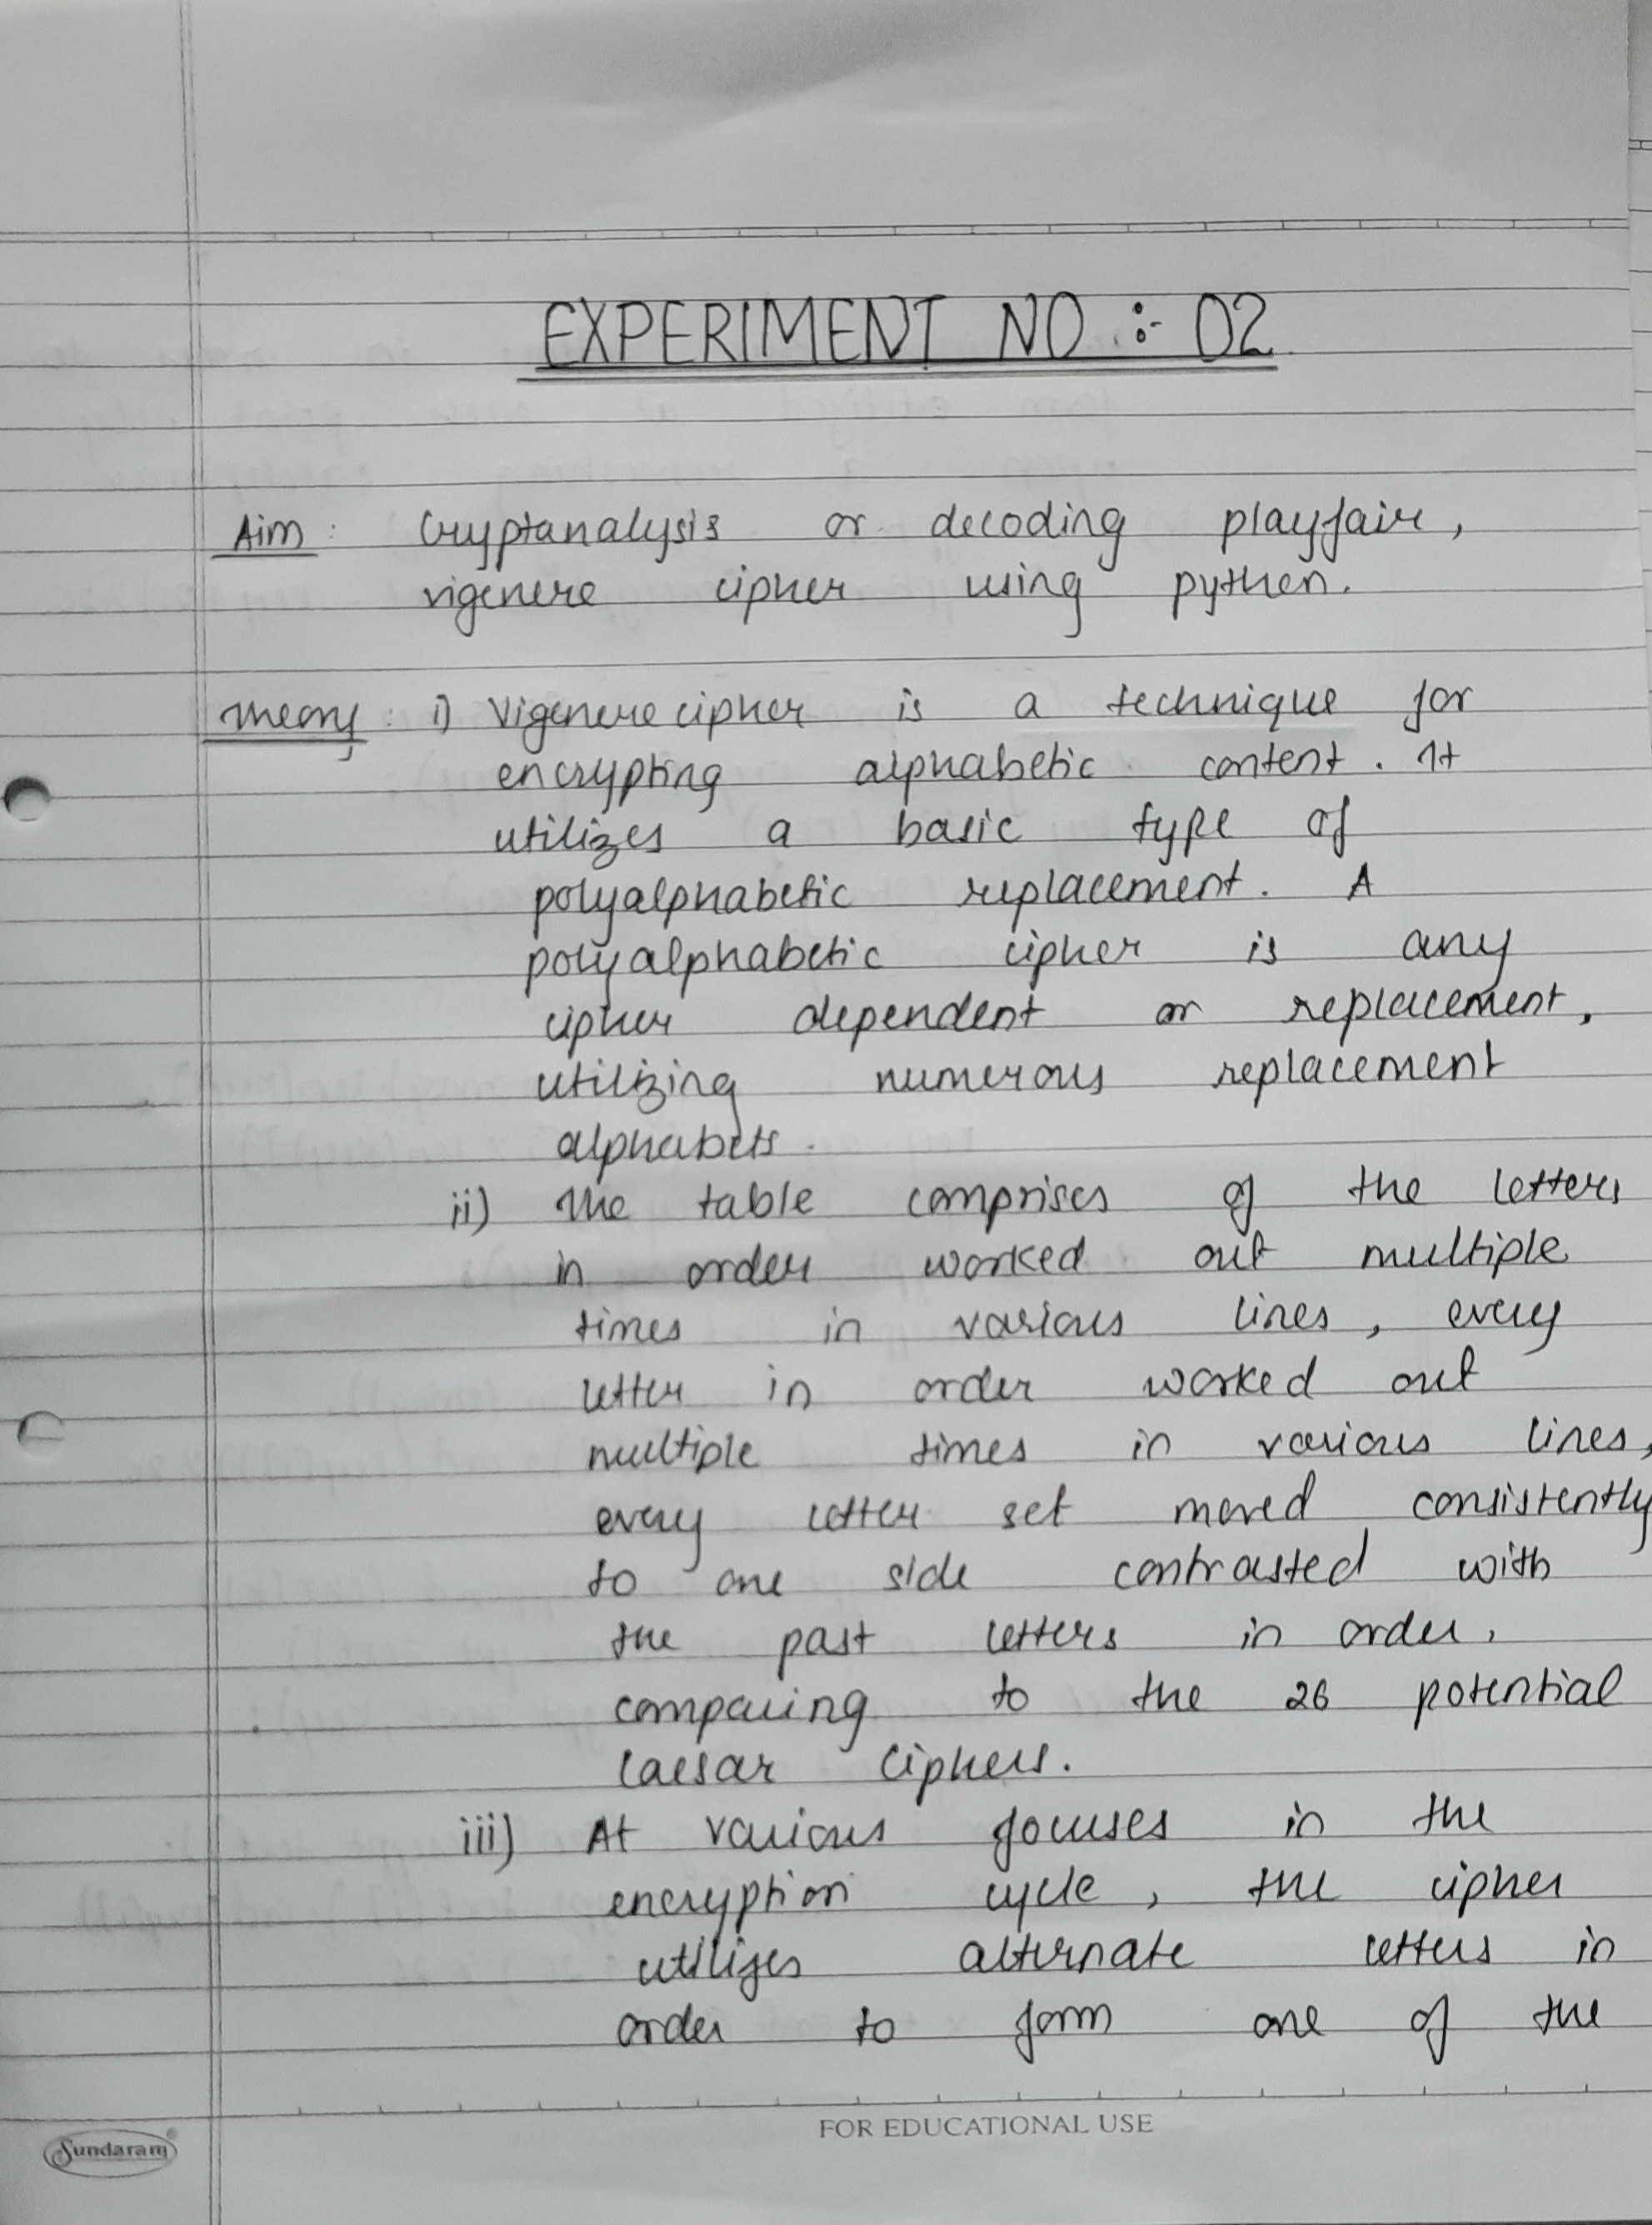 EXPERIMENT NO :- 02
Aim : Cryptanalysis or decoding playfair,
vigenere cipher using python.
Theory : i) Vigenere cipher is a technique for
encrypting alphabetic content. It
utilizes a basic type of
polyalphabetic replacement. A
polyalphabetic cipher is any
cipher dependent or replacement,
utilizing numerous replacement
alphabets.
ii) The table comprises of the letters
in order worked out multiple
times in various lines, every
letter in order worked out
multiple times in various lines,
every letter set moved consistently
to one side contrasted with
the past letters in order,
comparing to the 26 potential
Caesar Ciphers.
iii) At various focuses in the
encryption cycle, the cipher
utilizes alternate letters in
order to form one of the
FOR EDUCATIONAL USE
Sundaram